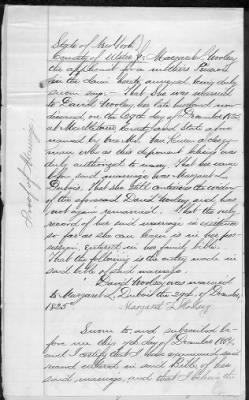 State of New York
County of Ulster } Margaret Wooley
the applicant for a mothers Pension
in the claim hereto annexed being duly
sworn says - That she was married
to David Wooley, her late husband now
deceased, on the 29th day of December 1825
at Marbletown County and State afore
named by one
who as this deponent believes was
duly authorized to marry That her name
before said marriage was Margaret L.
Dubois. That she still continues the widow
of the aforesaid David Wooley and has
not again remarried. That the only
record of her said marriage in existence
so far as she can learn is in her pos
session, entered in her family bible.
That the following is the entry made in
said bible of said marriage.
David Wooley was married
to Margaret L. Dubois the 29th of December
1825
Margaret L.
Sworn to and subscribed be
fore me this day of December
and I certify that I have examined said
record entered in said Bible of her
said marriage, and that I believe the
Proof of Marriage